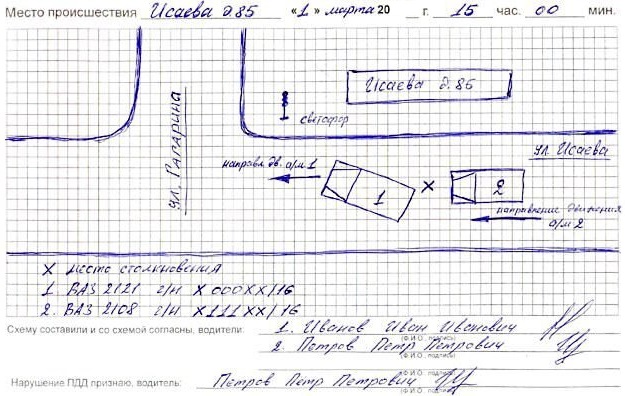 Место происшествия Исаева д 85 «1» марта 20 г. 15 час. 00 мин.
Исаева д. 85
светофор
ул. Гагарина
ул Исаева
направл. дв. а/м 1
1
X
2
направление движения
а/м 2
X место столкновения
1 ВАЗ 2121 г/н X000XX/16
2. ВАЗ 2108 г/н X111XX/16
Схему составили и со схемой согласны, водители: 1. Иванов Иван Иванович
(Ф.И.О., подпись)
2. Петров Петр Петрович
(Ф.И.О., подпись)
Нарушение ПДД признаю, водитель: Петров Петр Петрович
(Ф.И.О., подпись)